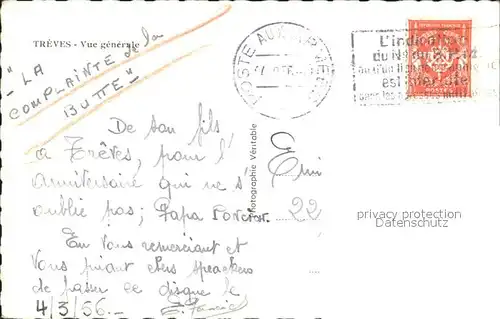 TRÈVES - Vue générale
"LA
COMPLAINTE de la
BUTTE"
POSTE AUX ARMEES
L'indication
du N° du B.P.M.
est interdite
POSTES
De son fils
à Trêves, pour l'
anniversaire qui ne s'
oublie pas; Papa
En vous remerciant et
Vous priant chers speackers
de passer ce disque le
4/3/56.-
22
Photographie Véritable
privacy protection
Datenschutz